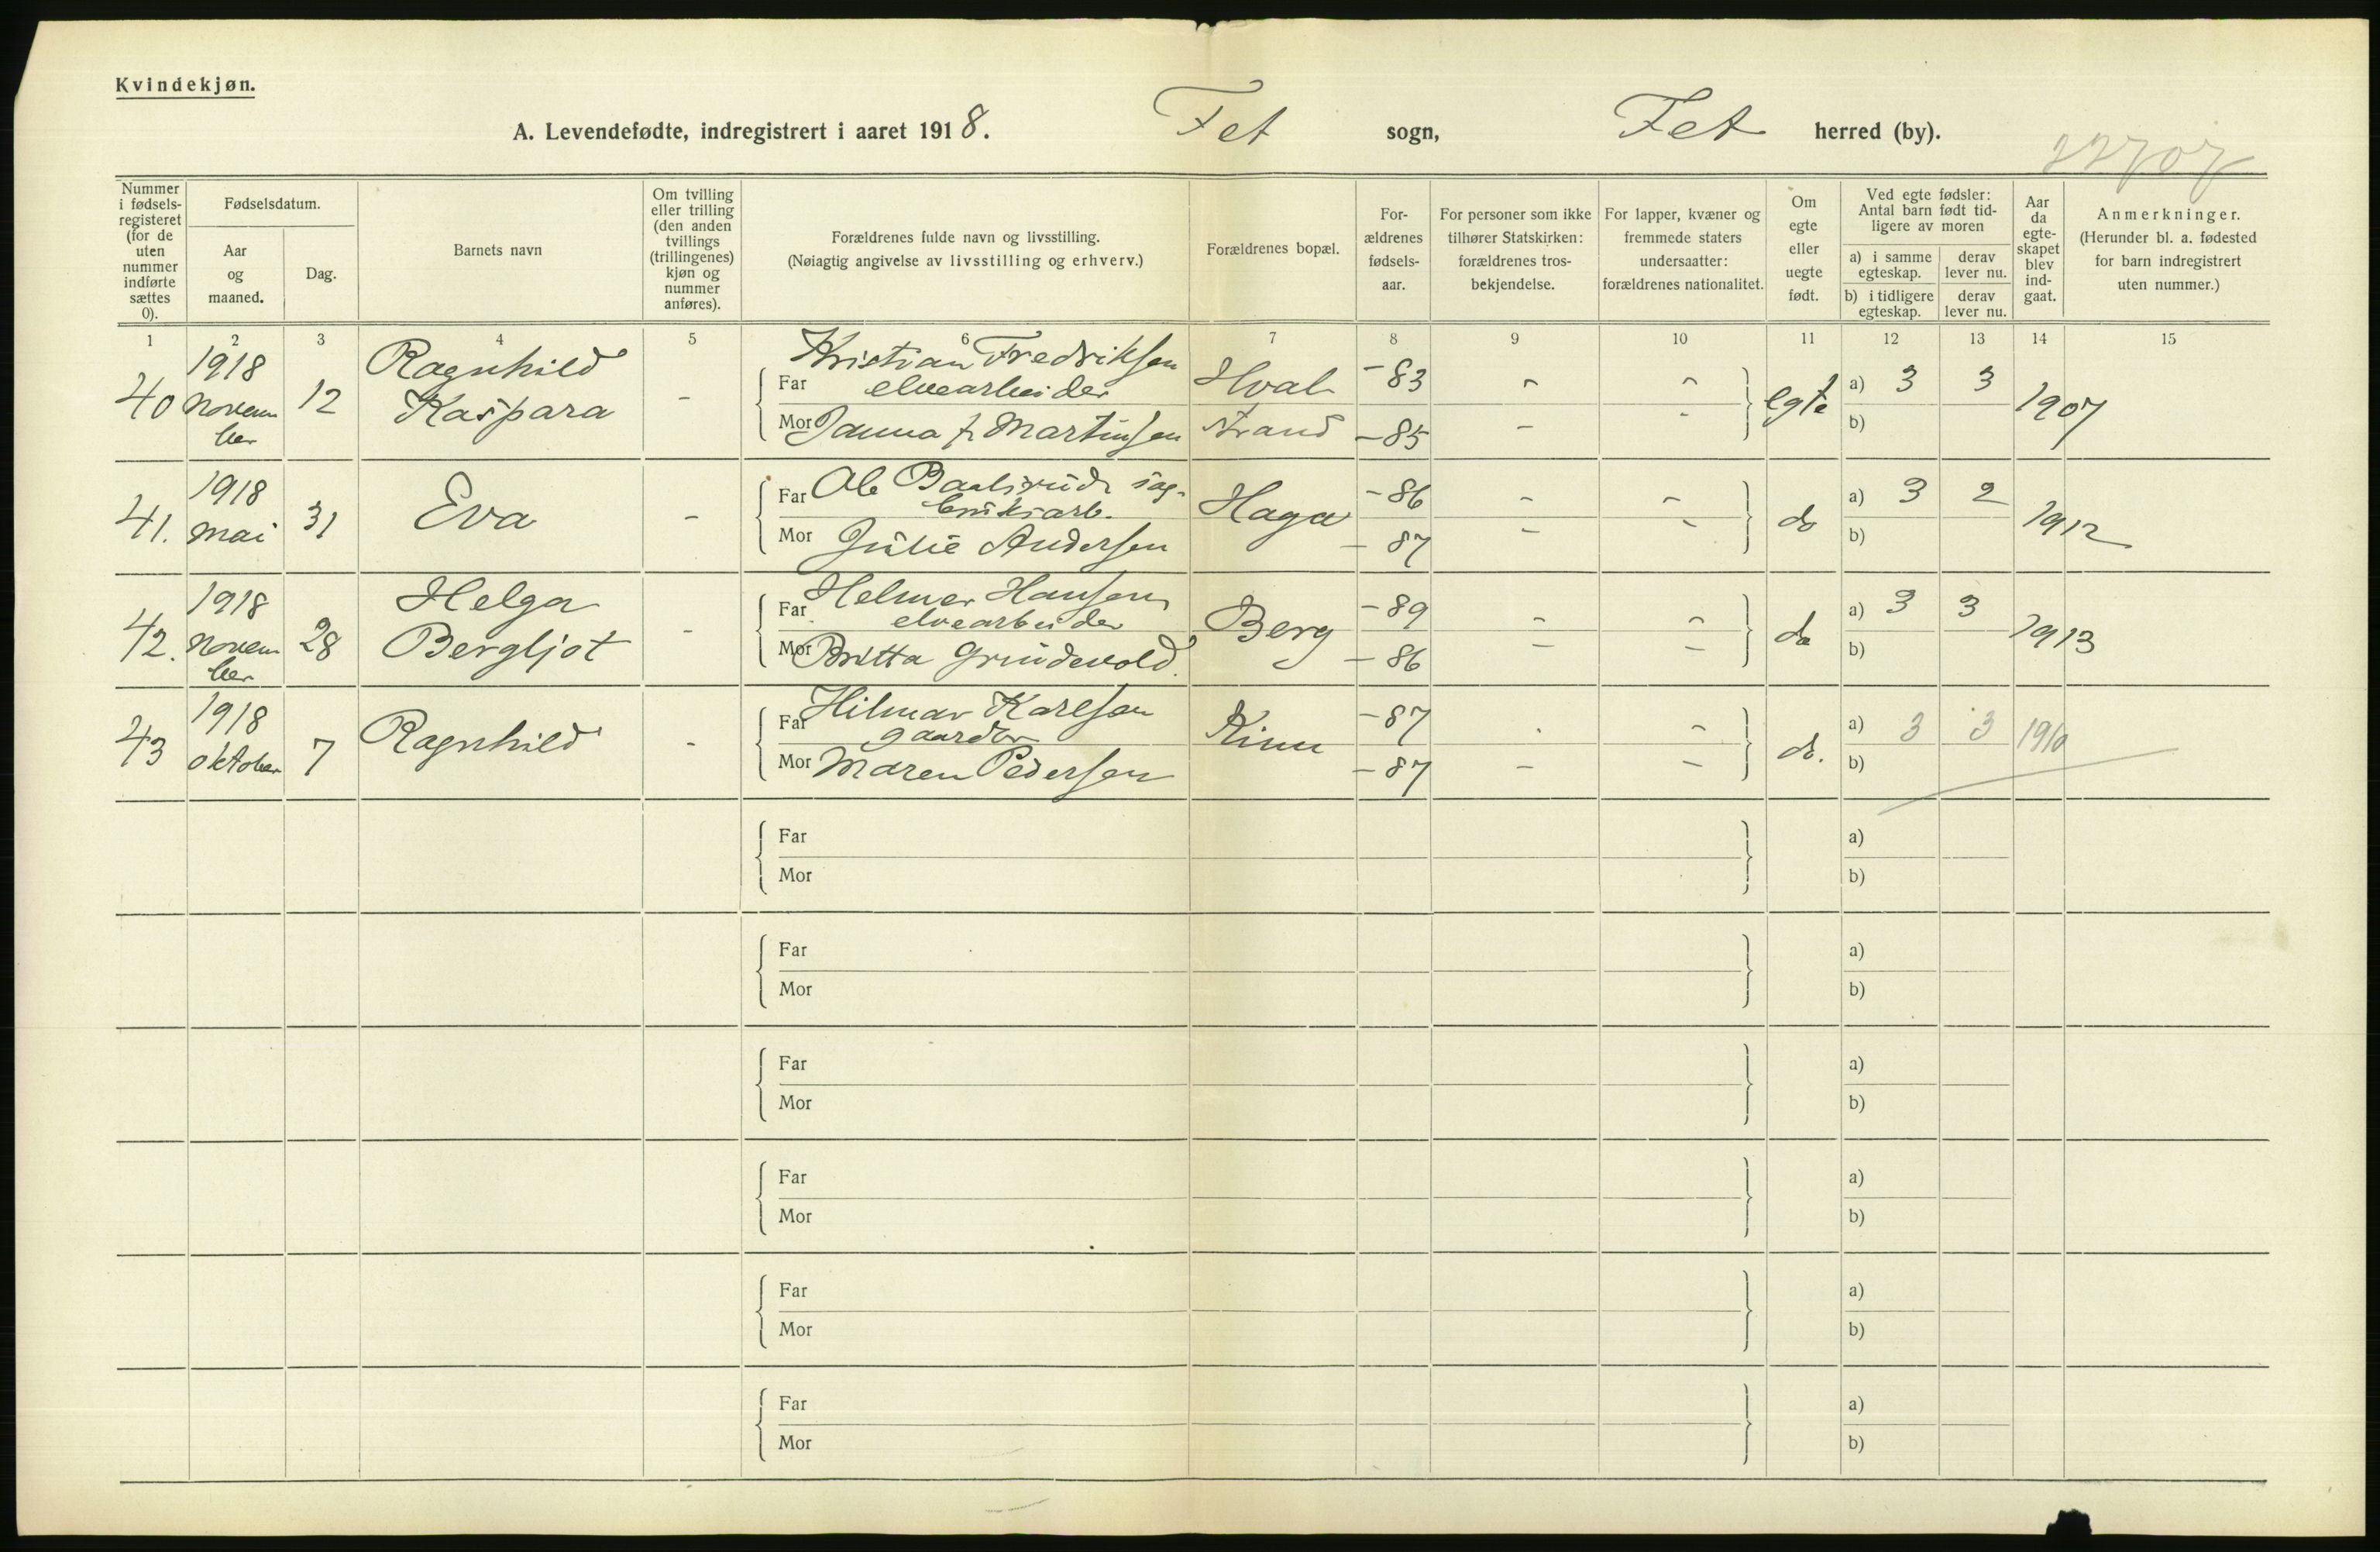 Kvindekjøn.
A. Levendefødte, indregistrert i aaret 1918. Fet sogn, Fet herred (by).
22707
Nummer i fødselsregisteret (for de uten nummer indførte sættes 0).
Fødselsdatum.
Aar og maaned.
Dag.
Barnets navn
Om tvilling eller trilling (den anden tvillings (trillingenes) kjøn og nummer anføres).
Forældrenes fulde navn og livsstilling.
(Nøiagtig angivelse av livsstilling og erhverv.)
Forældrenes bopæl.
For-ældrenes fødsels-aar.
For personer som ikke tilhører Statskirken: forældrenes tros-bekjendelse.
For lapper, kvæner og fremmede staters undersaatter: forældrenes nationalitet.
Om egte eller uegte født.
Ved egte fødsler: Antal barn født tid-ligere av moren
a) i samme egteskap.
derav lever nu.
b) i tidligere egteskap.
derav lever nu.
Aar da egte-skapet blev ind-gaat.
Anmerkninger.
(Herunder bl. a. fødested for barn indregistrert uten nummer.)
1 2 3 4 5 6 7 8 9 10 11 12 13 14 15
40 1918 novem ber 12 Ragnhild Kaspara -
Far Kristian Fredriksen elvearbeider Hval -83 - - egte a) 3 3 1907
Mor Janna f. Martinsen strand -85 - - b)
41. 1918 mai 31 Eva -
Far Ole Baalsrud sag-bruksarb. Haga -86 - - do a) 3 2 1912
Mor Julie Andersen - 87 - - b)
42. 1918 novem ber 28 Helga Bergljot -
Far Helmer Hansen elvearbeider Berg -89 - - do a) 3 3 1913
Mor Britta Grindevold. - 86 - - b)
43 1918 oktober 7 Ragnhild -
Far Hilmar Karlsen gaardbr Kinn -87 - - do. a) 3 3 1910
Mor Maren Pedersen -87 - - b)
Far a)
Mor b)
Far a)
Mor b)
Far a)
Mor b)
Far a)
Mor b)
Far a)
Mor b)
Far a)
Mor b)